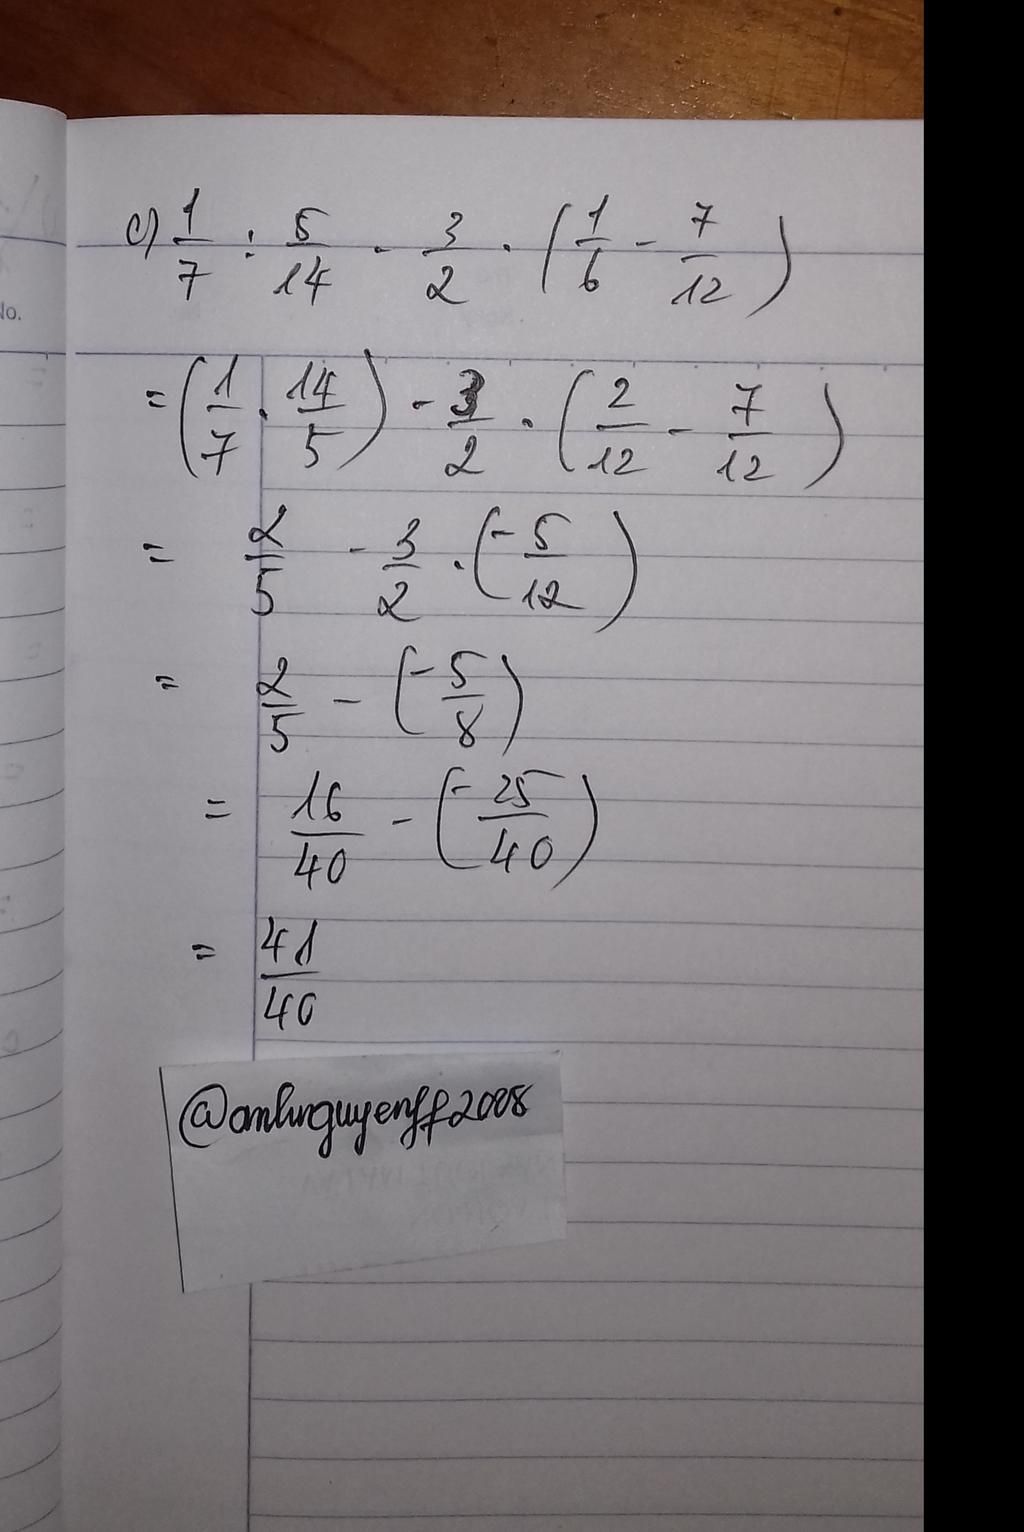 c) 1/7 : 5/14 - 3/2 . (1/6 - 7/12)
= (1/7 . 14/5) - 3/2 . (2/12 - 7/12)
= 2/5 - 3/2 . (-5/12)
= 2/5 - (-5/8)
= 16/40 - (-25/40)
= 41/40
@anhnguyenff2008